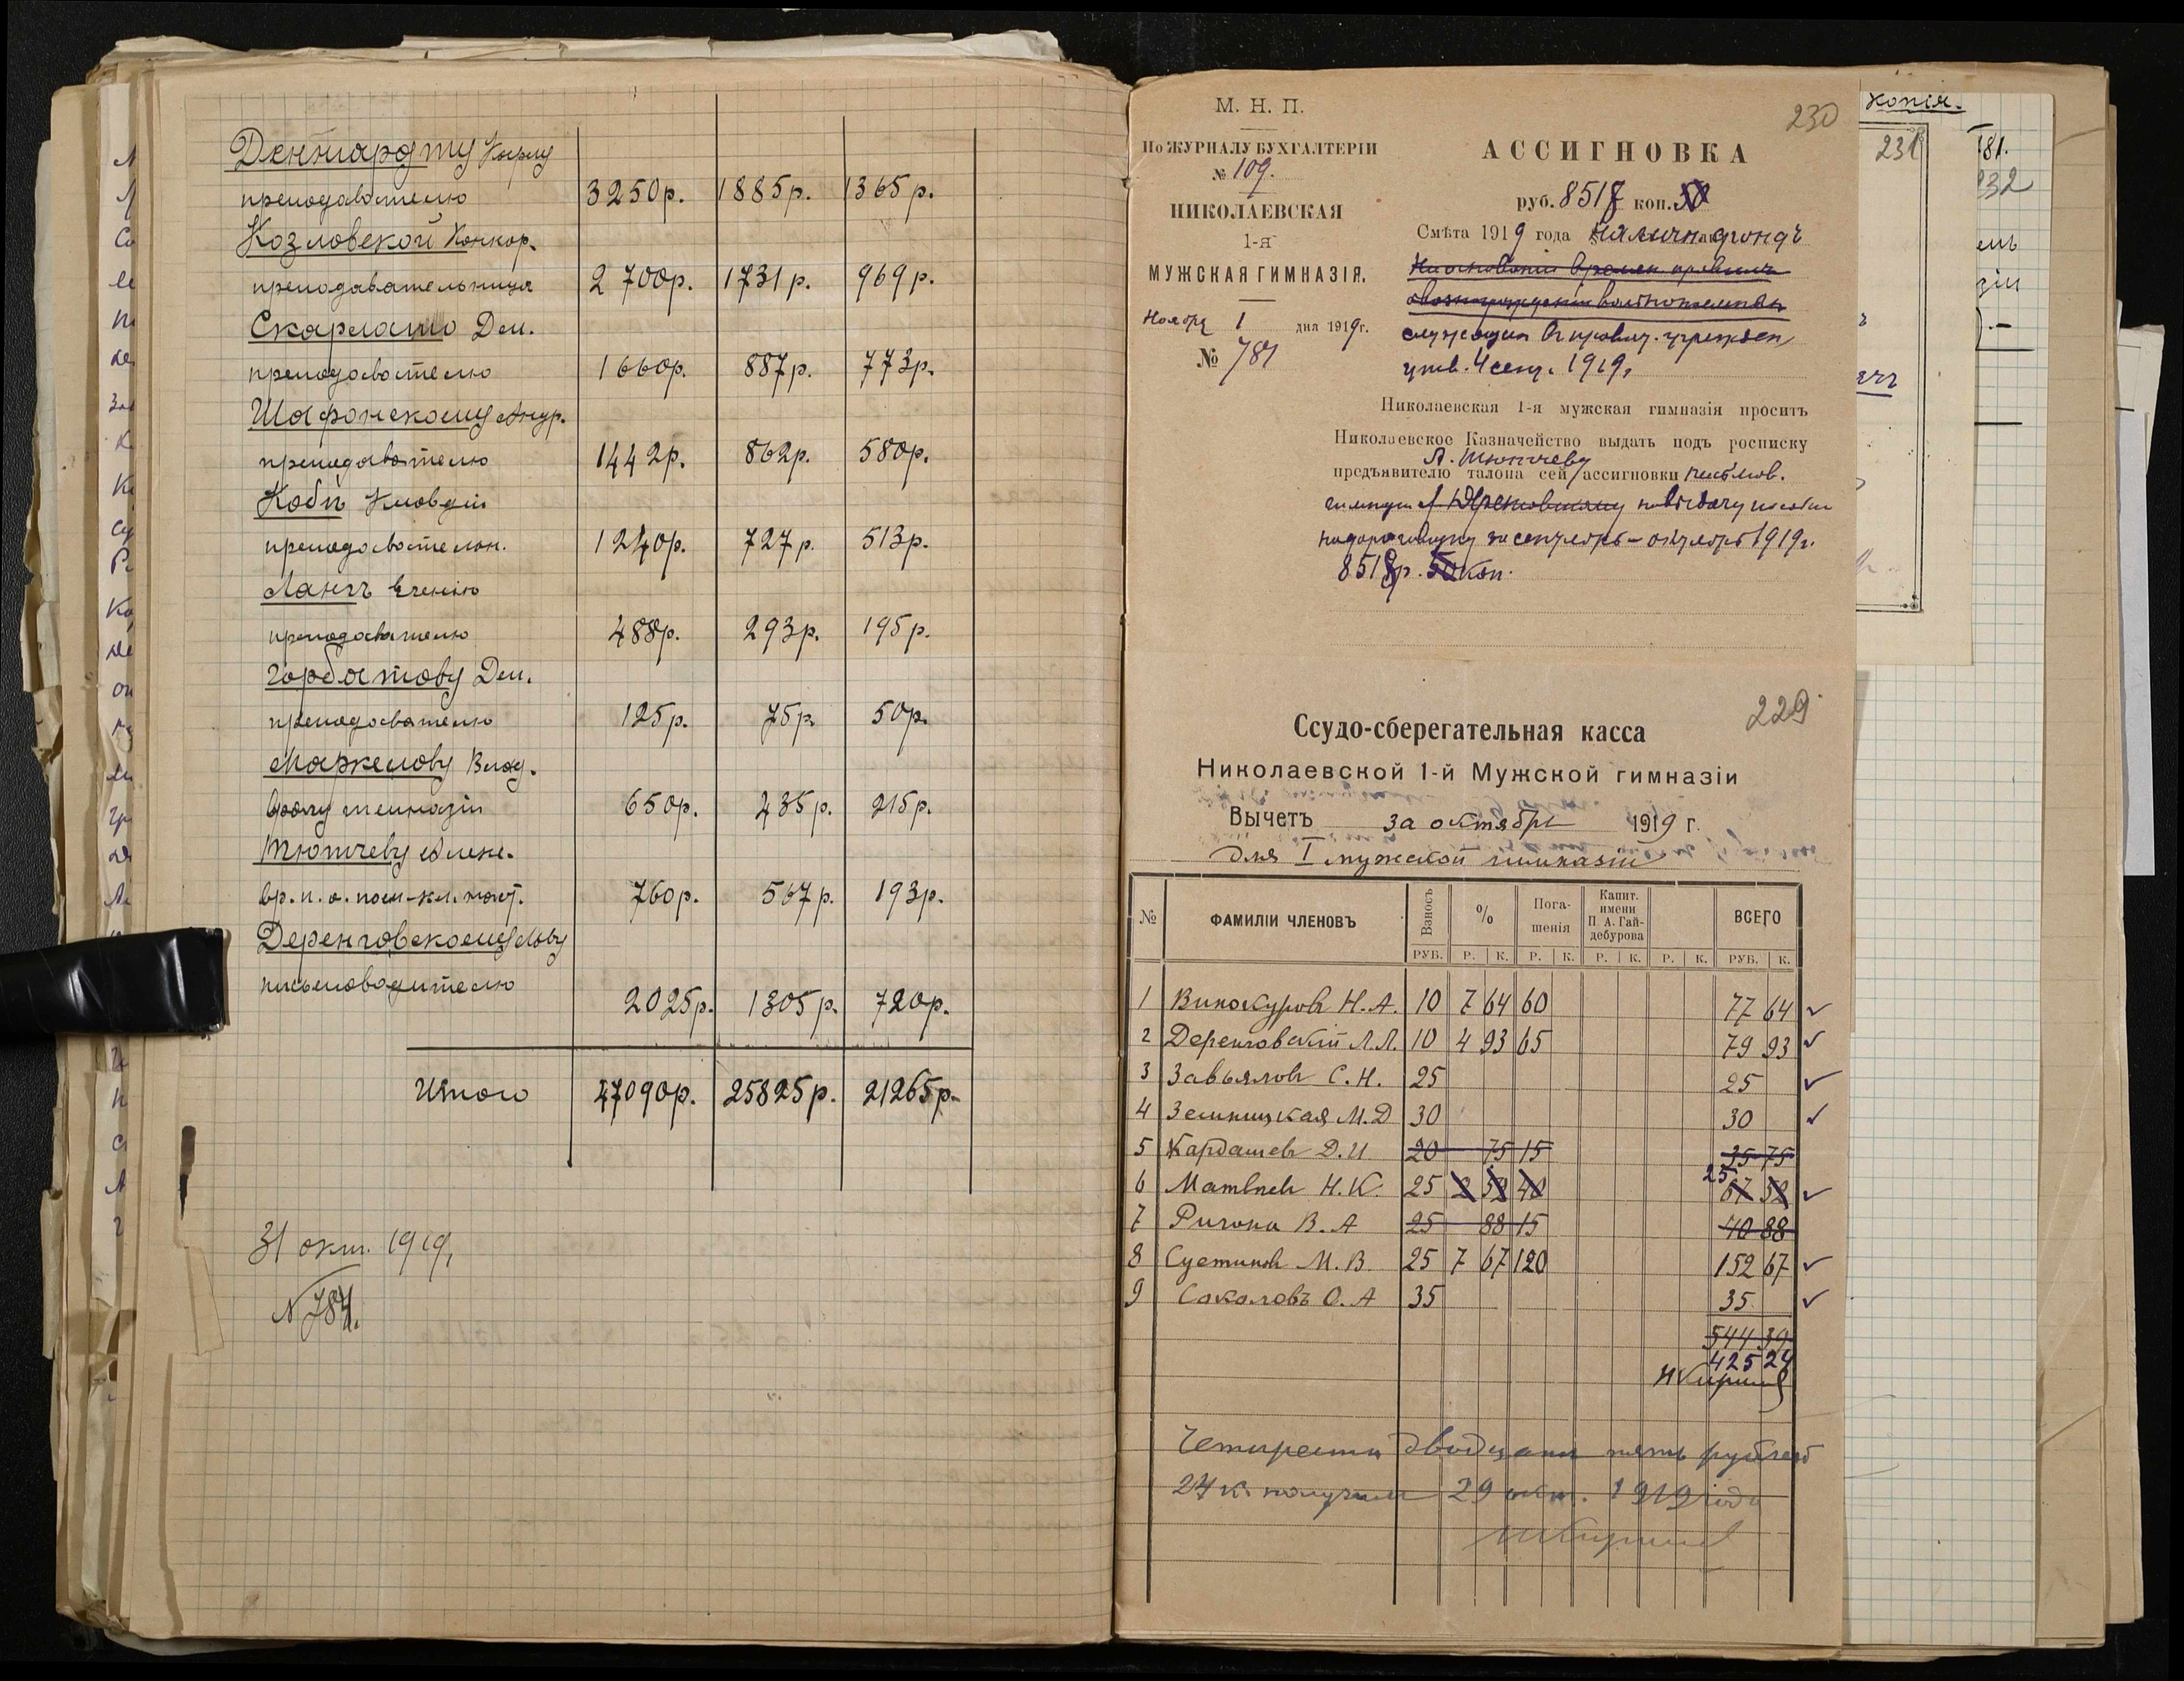 Деннгардту Карлу
преподавателю 3250р. 1885р. 1365р.
Козловской Конкор.
преподавательница 2700р. 1731р. 969р.
Скарлато Дем.
преподавателю 1660р. 887р. 773р.
Шафонскому Андр.
преподавателю 1442р. 862р. 580р.
Кобъ Клавдіи
преподавателън. 1240р. 727р. 513р.
Лангъ Евгенію
преподавателю 488р. 293р. 195р.
Горбатову Дем.
преподавателю 125р. 75р. 50р.
Маркелову Влад.
врачу гимназіи 650р. 435р. 215р.
Тютчеву Алекс.
вр. п. о. пом. кл. наст. 760р. 567р. 193р.
Деренговскому Льву
письмоводителю
2025р. 1305р. 720р.
Итого 47090р. 25825р. 21265р.
31 окт. 1919,
№ 784.
230
М. Н. П.
По ЖУРНАЛУ БУХГАЛТЕРІИ
№ 109.
НИКОЛАЕВСКАЯ
1-я
МУЖСКАЯ ГИМНАЗІЯ.
Ноября 1 дня 1919г.
№ 781
АССИГНОВКА
руб. 8518 коп. 50
Смѣта 1919 года фондъ
служащим въ правит. учрежден
утв. 4 сент. 1919,
Николаевская 1-я мужская гимназія проситъ
Николаевское Казначейство выдать подъ росписку
А. Тютчеву
предъявителю талона сей ассигновки письмов.
гимназіи Л. Деренговскому на выдачу пособія
на дороговизну за сентябрь – октябрь 1919г.
8518р. 50 коп.
229
Ссудо-сберегательная касса
Николаевской 1-й Мужской гимназіи
Вычетъ за октябрь 1919 г.
для I мужской гимназіи
№ ФАМИЛІИ ЧЛЕНОВЪ Взносъ % Пога-шенія Капит. имени П. А. Гай-дебурова ВСЕГО
РУБ. Р. К. Р. К. Р. К. Р. К. РУБ. К.
1 Винокуровъ Н.А. 10 7 64 60 77 64
2 Деренговскій Л.Л. 10 4 93 65 79 93
3 Завьяловъ С.Н. 25 25
4 Земницкая М.Д 30 30
5 Кардашевъ Д.И 20 75 15 35 75
6 Матвѣевъ Н.К. 25 2 58 40 67 58 25
7 Ригона В.А 25 88 15 40 88
8 Суетиновъ М.В. 25 7 67 120 152 67
9 Соколовъ О.А 35 35
544 39
425 24
Четыреста двадцать пять рублей
24 к. получилъ 29 окт. 1919 года
копія.
231
781.
232